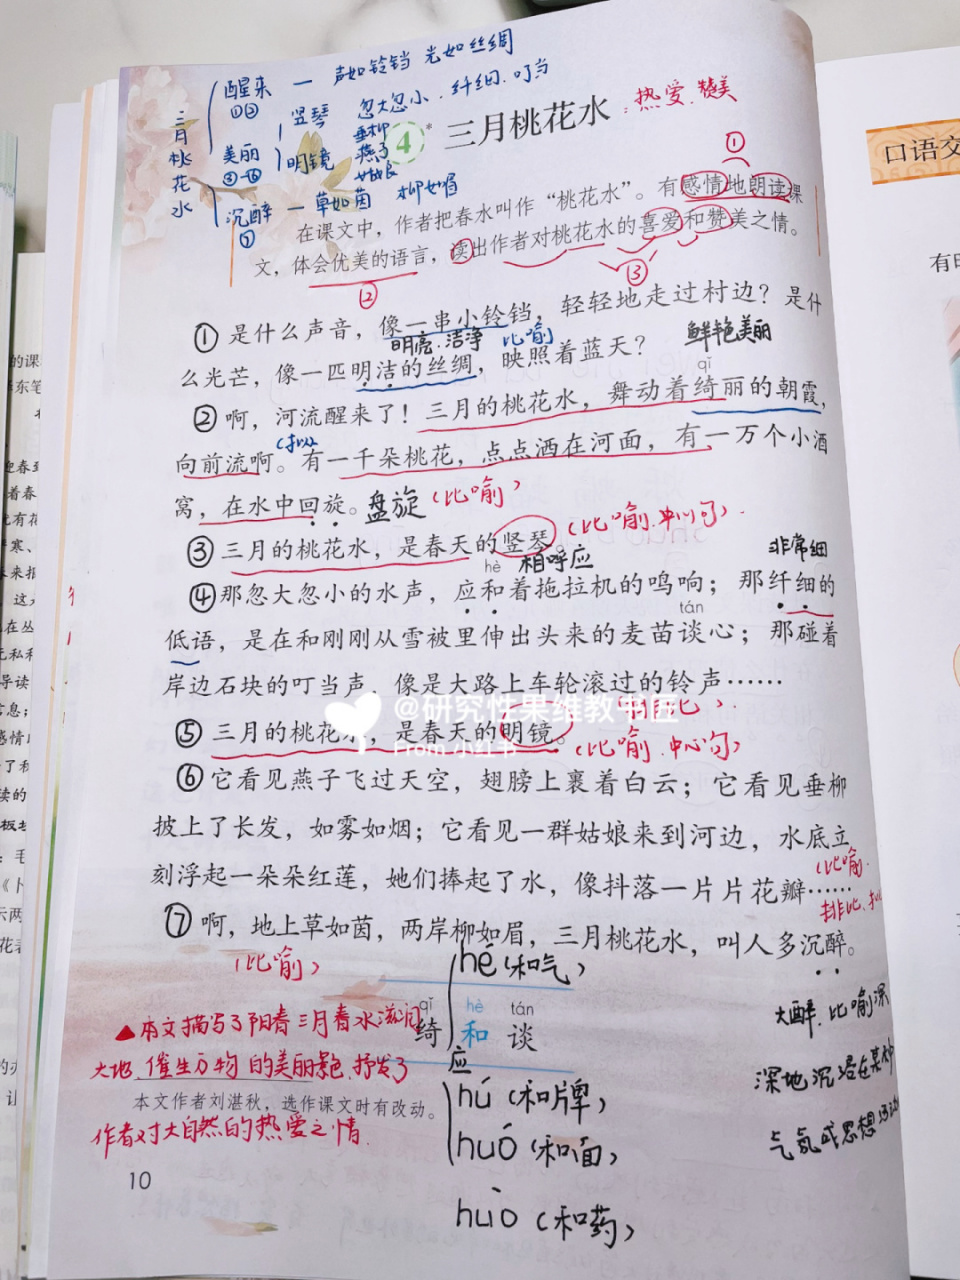 醒来 — 声如铃铛 光如丝绸
①②
三月桃花水
竖琴 忽大忽小、纤细、叮当
美丽
③—⑥
明镜 垂柳
燕子
姑娘
沉醉 — 草如茵 柳如眉
⑦
4* 三月桃花水：热爱、赞美
口语交
①
在课文中，作者把春水叫作“桃花水”。有感情地朗读课
文，体会优美的语言，读出作者对桃花水的喜爱和赞美之情。
② ③
①是什么声音，像一串小铃铛，轻轻地走过村边？是什
明亮、洁净 比喻 鲜艳美丽
qǐ
么光芒，像一匹明洁的丝绸，映照着蓝天？
②啊，河流醒来了！三月的桃花水，舞动着绮丽的朝霞，
（拟人）
向前流啊。有一千朵桃花，点点洒在河面，有一万个小酒
窝，在水中回旋。盘旋（比喻）
③三月的桃花水，是春天的竖琴。（比喻、中心句）
hè 相呼应 非常细
④那忽大忽小的水声，应和着拖拉机的鸣响；那纤细的
tán
低语，是在和刚刚从雪被里伸出头来的麦苗谈心；那碰着
岸边石块的叮当声，像是大路上车轮滚过的铃声……
@研究性果维教书匠
From 小红书
⑤三月的桃花水，是春天的明镜。（比喻、中心句）
⑥它看见燕子飞过天空，翅膀上裹着白云；它看见垂柳
披上了长发，如雾如烟；它看见一群姑娘来到河边，水底立
刻浮起一朵朵红莲，她们捧起了水，像抖落一片片花瓣……
（比喻、
排比、拟
⑦啊，地上草如茵，两岸柳如眉，三月桃花水，叫人多沉醉。
（比喻）
hé（和气）
qǐ hè tán
绮 和 谈
应
hú（和牌）
huó（和面）
huò（和药）
大醉，比喻深
深地沉浸在某种
气氛或思想活动
▲本文描写了阳春三月春水滋润
大地、催生万物的美丽景色，抒发了
本文作者刘湛秋，选作课文时有改动。
作者对大自然的热爱之情
10